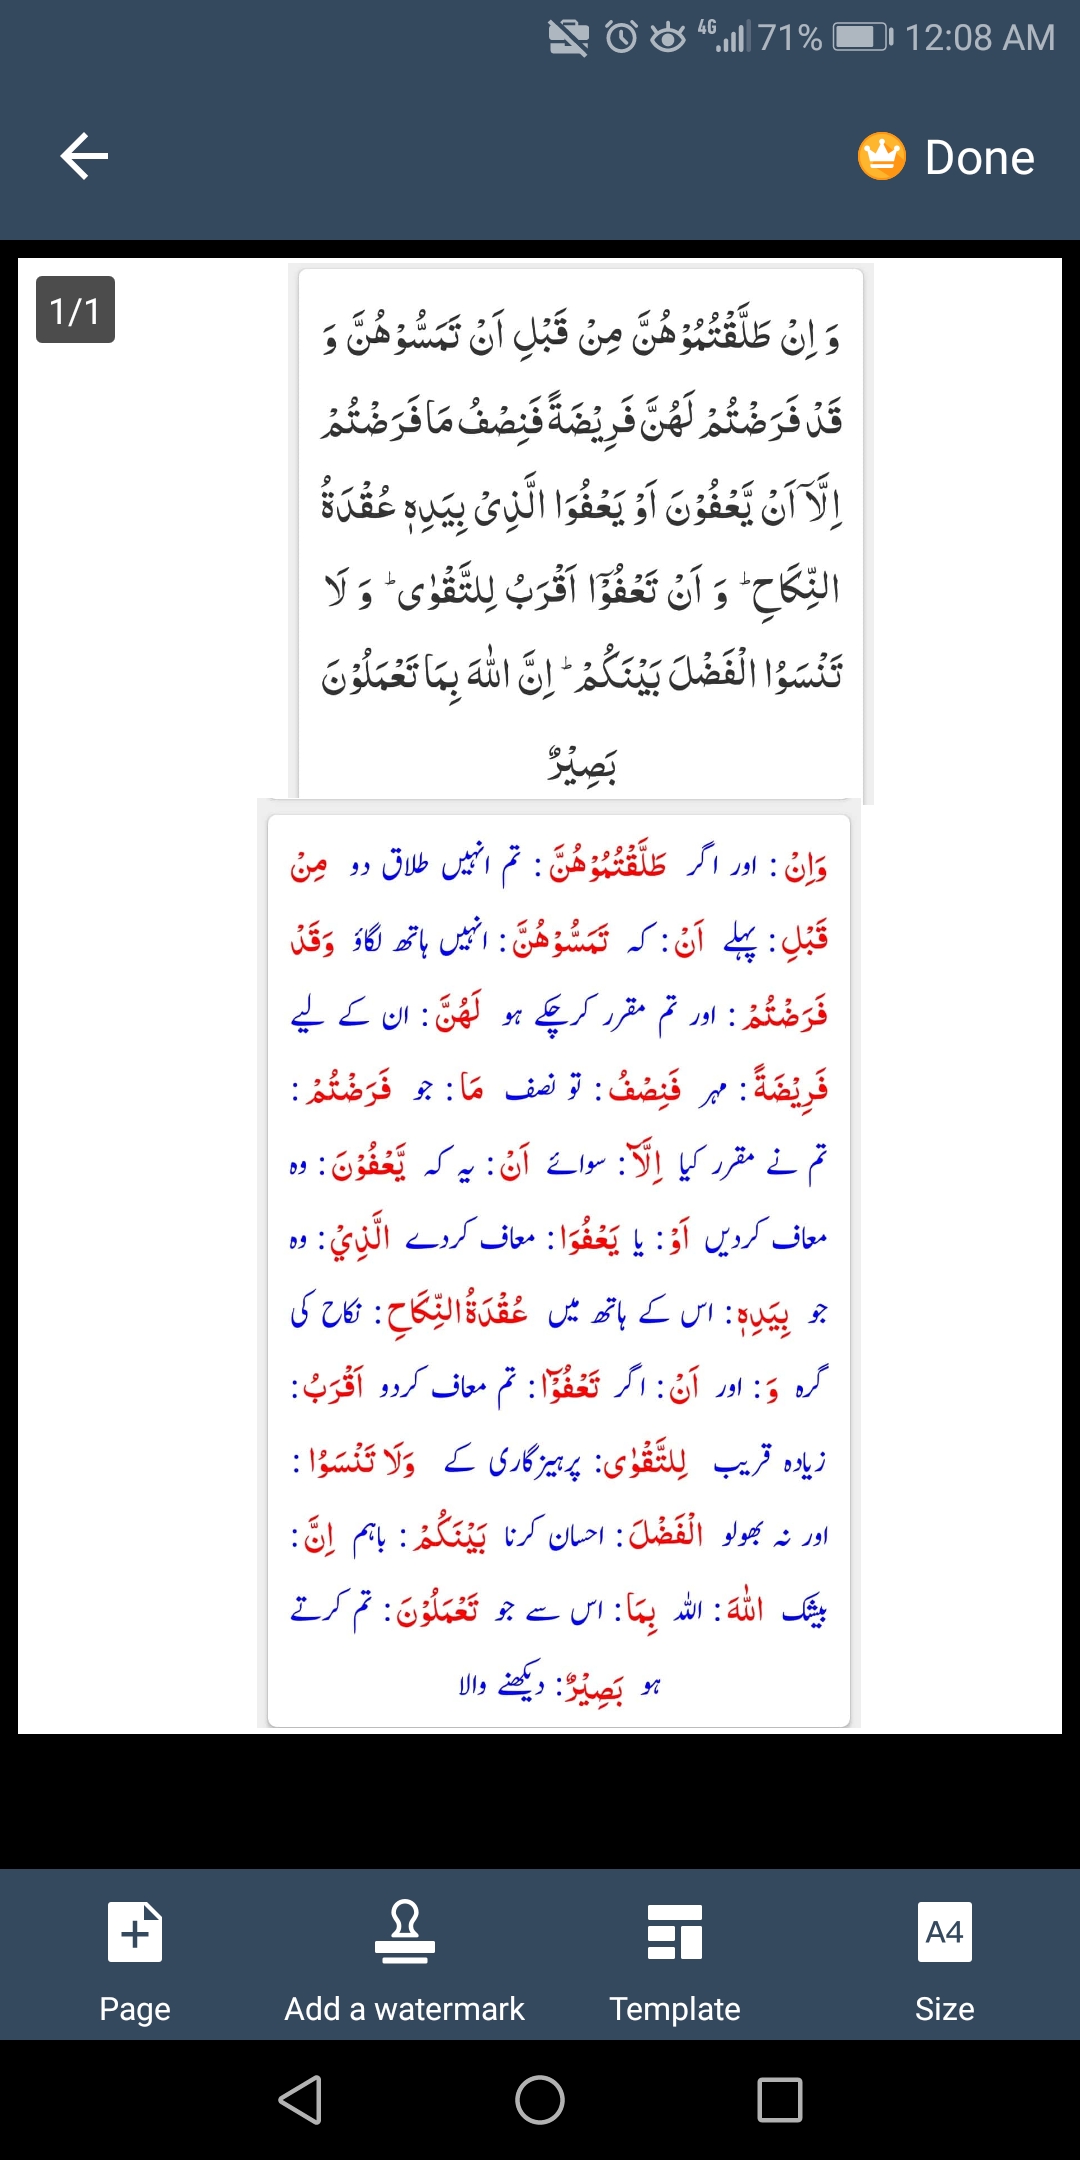 4G 71% 12:08 AM
Done
1/1
وَ اِنْ طَلَّقْتُمُوْهُنَّ مِنْ قَبْلِ اَنْ تَمَسُّوْهُنَّ وَ
قَدْ فَرَضْتُمْ لَهُنَّ فَرِیْضَةً فَنِصْفُ مَا فَرَضْتُمْ
اِلَّاۤ اَنْ یَّعْفُوْنَ اَوْ یَعْفُوَا الَّذِیْ بِیَدِهٖ عُقْدَةُ
النِّكَاحِؕ وَ اَنْ تَعْفُوْۤا اَقْرَبُ لِلتَّقْوٰىؕ وَ لَا
تَنْسَوُا الْفَضْلَ بَیْنَكُمْؕ اِنَّ اللّٰهَ بِمَا تَعْمَلُوْنَ
بَصِیْرٌ
وَاِنْ : اور اگر طَلَّقْتُمُوْھُنَّ : تم انہیں طلاق دو مِنْ
قَبْلِ : پہلے اَنْ : کہ تَمَسُّوْھُنَّ : انہیں ہاتھ لگاؤ وَقَدْ
فَرَضْتُمْ : اور تم مقرر کرچکے ہو لَھُنَّ : ان کے لیے
فَرِيْضَةً : مہر فَنِصْفُ : تو نصف مَا : جو فَرَضْتُمْ :
تم نے مقرر کیا اِلَّآ : سوائے اَنْ : یہ کہ يَّعْفُوْنَ : وہ
معاف کردیں اَوْ : یا يَعْفُوَا : معاف کردے الَّذِيْ : وہ
جو بِيَدِهٖ : اس کے ہاتھ میں عُقْدَةُ النِّكَاحِ : نکاح کی
گرہ وَ : اور اَنْ : اگر تَعْفُوْٓا : تم معاف کردو اَقْرَبُ :
زیادہ قریب لِلتَّقْوٰى : پرہیزگاری کے وَلَا تَنْسَوُا :
اور نہ بھولو الْفَضْلَ : احسان کرنا بَيْنَكُمْ : باہم اِنَّ :
بیشک اللّٰهَ : اللہ بِمَا : اس سے جو تَعْمَلُوْنَ : تم کرتے
ہو بَصِيْرٌ : دیکھنے والا
Page Add a watermark Template A4 Size